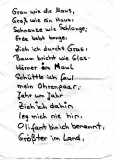 Grau wie die Maus,
Groß wie ein Haus;
Schnauze wie Schlange,
Erde bebt bange.
Zieh ich durchs Gras;
Baum bricht wie Glas.
Hörner im Maul
Schüttle ich faul
mein Ohrenpaar.
Jahr um Jahr
Zieh ich dahin
leg mich nie hin.
Olifant bin ich benannt,
Größter im Land,